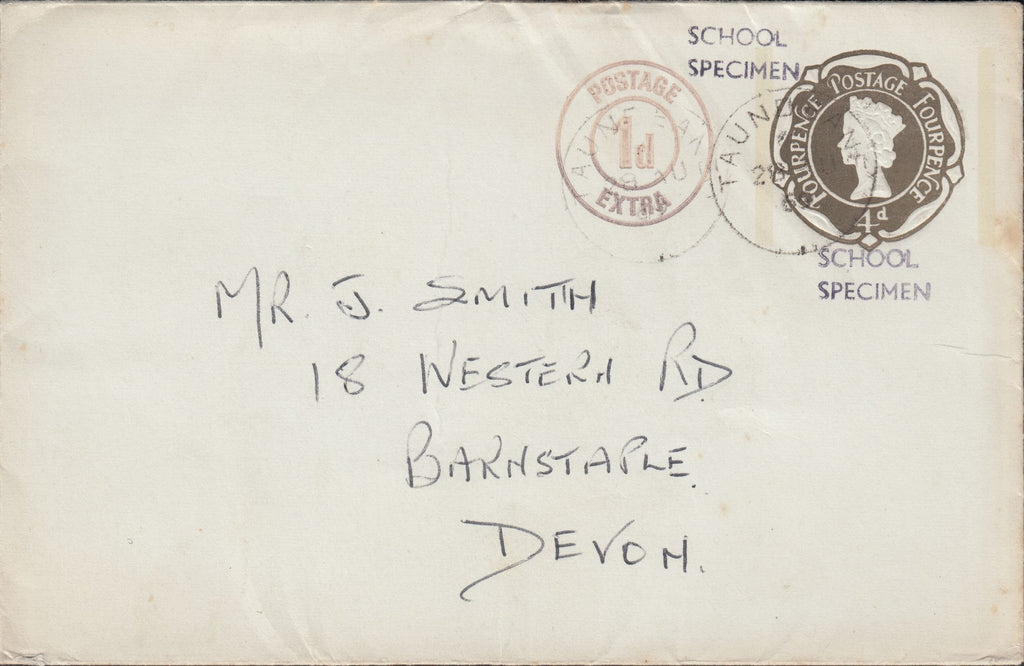 SCHOOL
SPECIMEN
POSTAGE
1d
EXTRA
FOURPENCE POSTAGE FOURPENCE
4d
TAUN
SCHOOL
SPECIMEN
MR. J. SMITH
18 WESTERN RD
BARNSTAPLE.
DEVON.